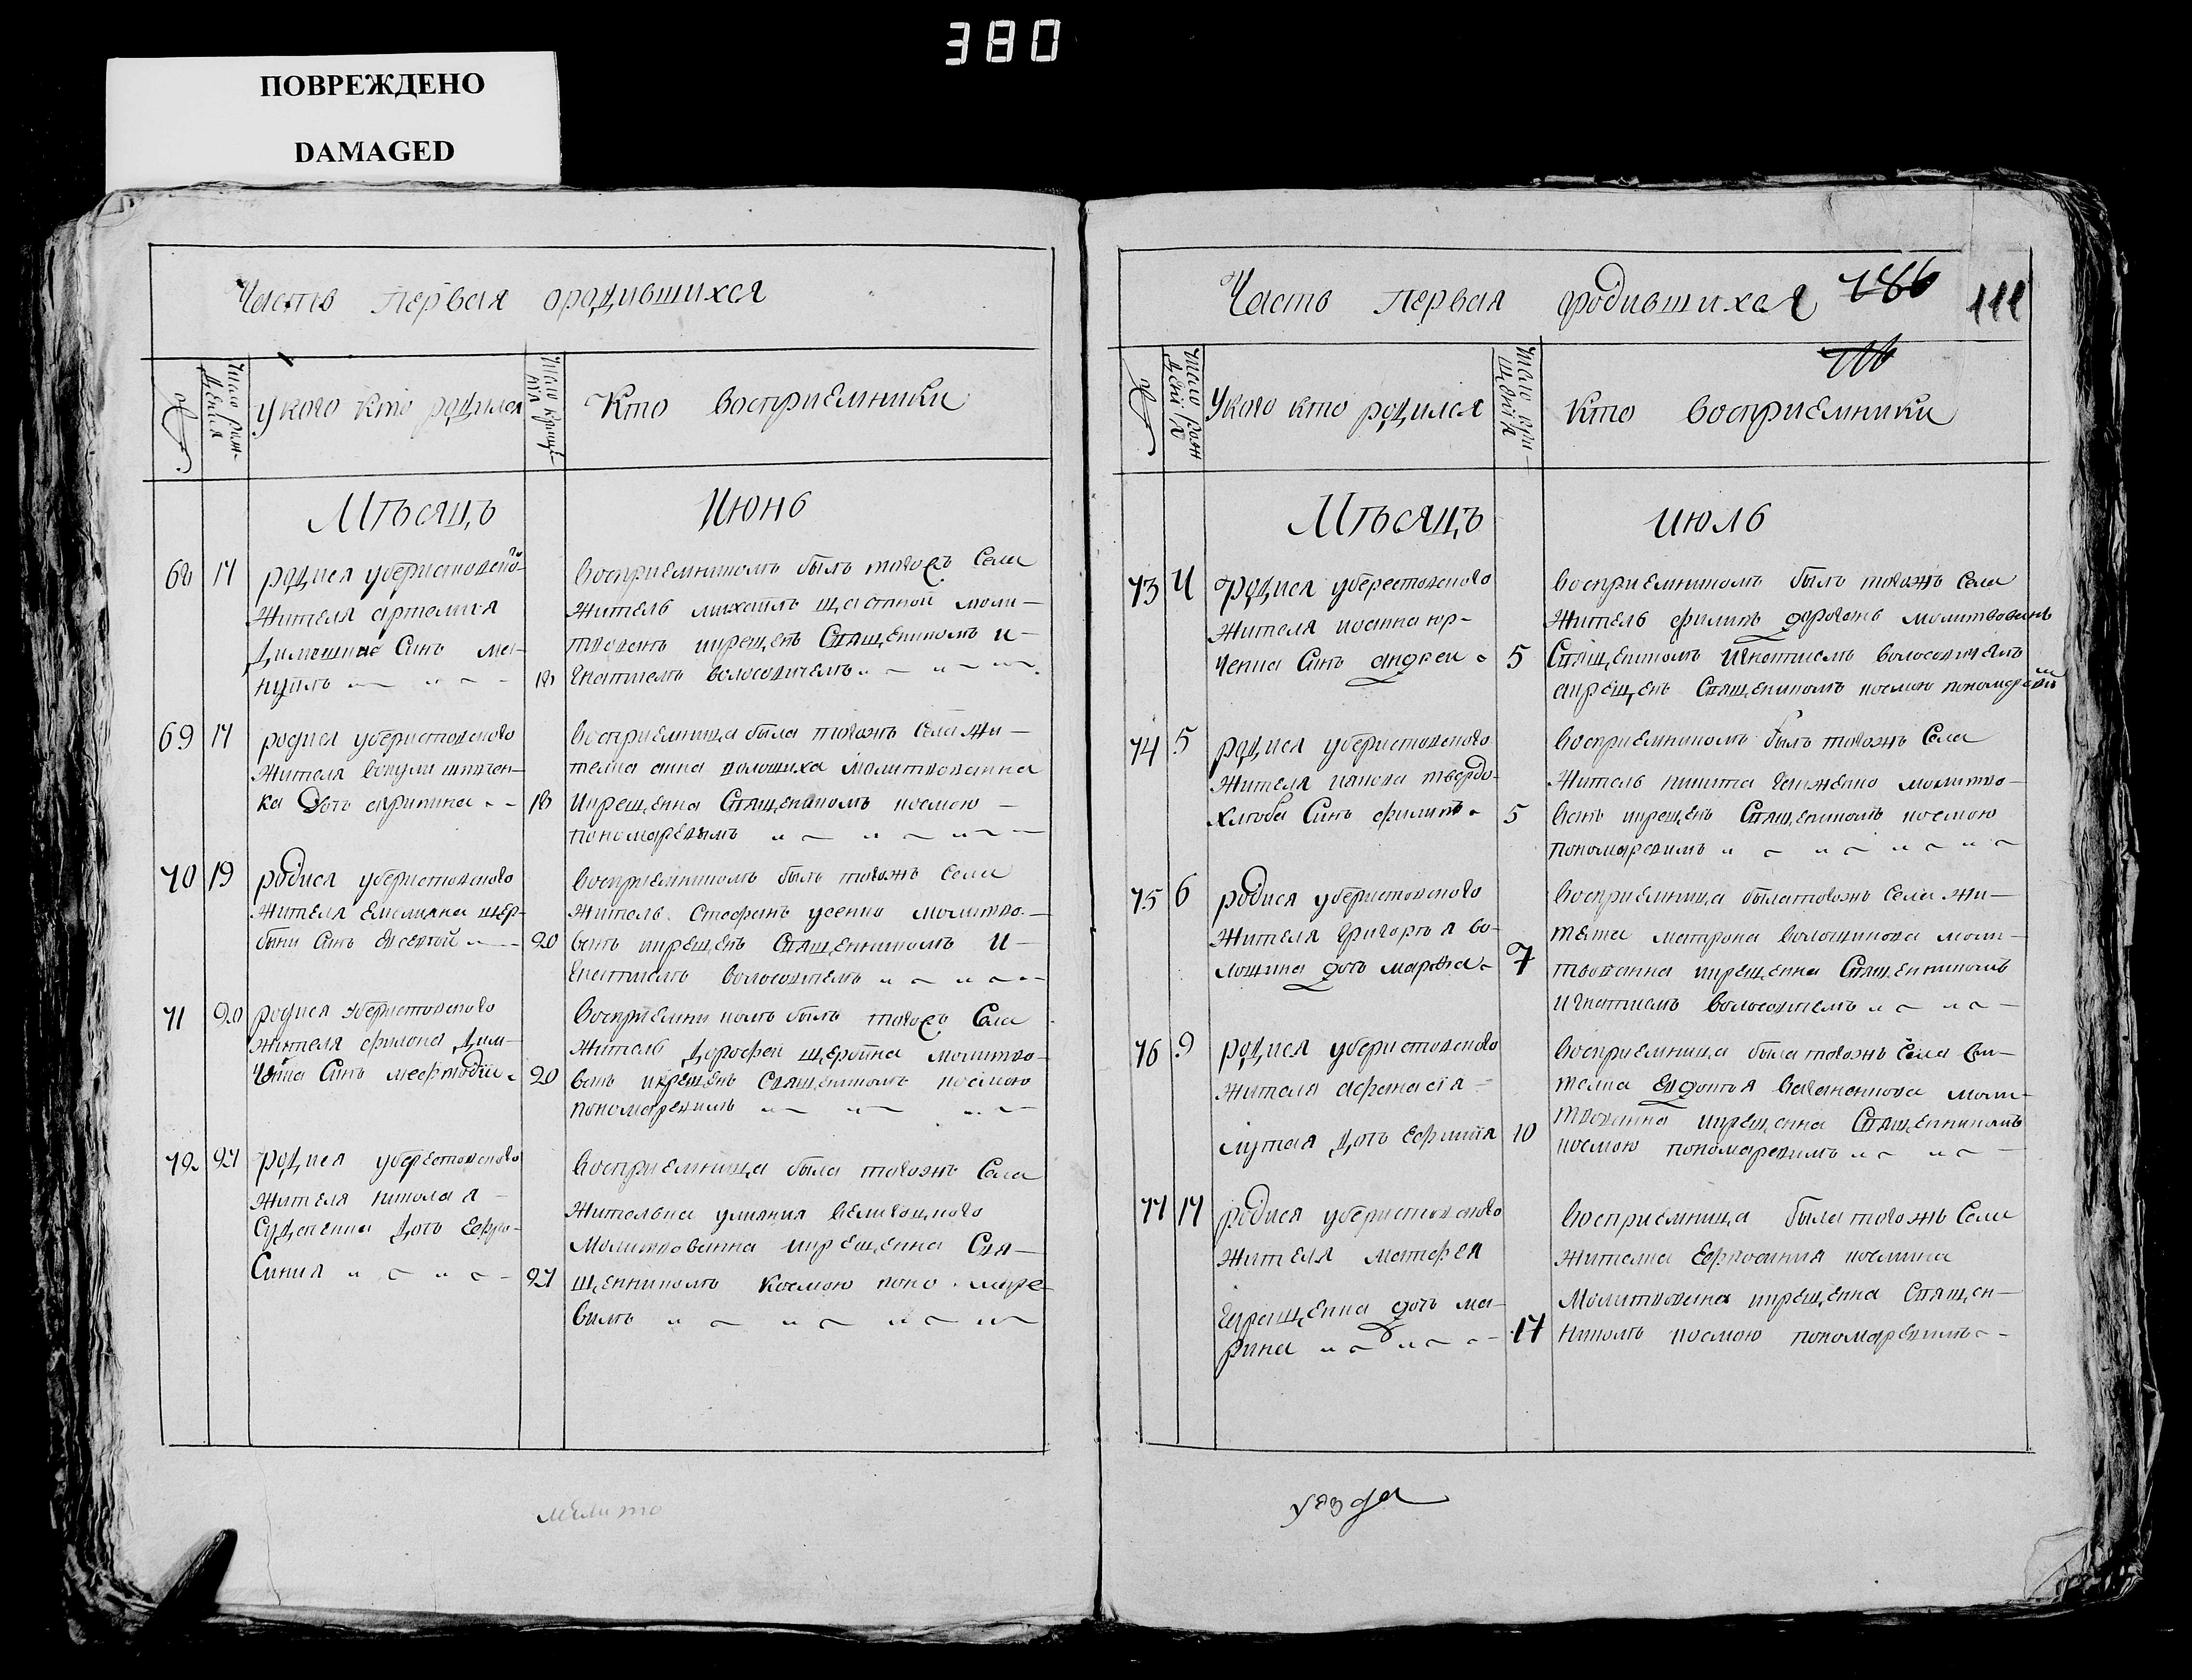 380
ПОВРЕЖДЕНО
DAMAGED
Часть первая ородившихся
Число рож-
дения
укого кто родился
Число креще-
ния
Кто восприемники
Мѣсяцъ Июнь
68 17 родися уберистовского
жителя артемия
Синъ ма-
нуилъ
18
восприемникомъ былъ тогожъ Села
житель михаилъ щастной моли-
твованъ икрещенъ Священикомъ и-
гнатиемъ волосовичемъ
69 17 родися уберистовского
жителя вакули шпичен-
ка Дочь акрипина
18
восприемница была тогожъ Села жи-
телка анна волошиха молитвованна
икрещенна Священикомъ космою
пономаревимъ
70 19 родися уберистовского
жителя Емелияна щер-
бини Синъ евсевий
20
восприемникомъ былъ тогожъ Села
житель Стефанъ усенко молитво-
ванъ икрещенъ Священникомъ и-
гнатиемъ волосовичемъ
71 20 родися уберистовского
жителя филона Дим-
Синъ мефтодий
20
восприемникомъ былъ тогожъ Села
житель Дорофей щербина молитво-
ванъ икрещенъ Священикомъ космою
пономаревимъ
72 27 родися уберестовского
жителя николая
Суденка Дочь Ефро-
Синия
27
восприемница была тогожъ Села
жителька улияния великоцкого
молитвованна икрещенна Свя-
щенникомъ Космою поно маре-
вымъ
мелито
Часть первая ородившихся 186 111
Число рож
дений
Укого кто родился
Число кре-
щений
Кто восприемники
Мѣсяцъ июль
73 4 родися уберестовского
жителя иоанна юр-
ченка Синъ андреи
5
восприемникомъ былъ тогожъ Села
житель филипъ молитвованъ
Священикомъ игнатиемъ волосовичемъ
акрещенъ Священикомъ космою пономаревимъ
74 5 родися уберистовского
жителя иакова твердо-
хлѣба Синъ филипъ
5
восприемникомъ былъ тогожъ Села
житель никита молитво-
ванъ икрещенъ Священикомъ космою
пономаревимъ
75 6 родися уберистовского
жителя григория во-
лошина дочь марѳа
7
восприемница была тогожъ села жи-
телка матрона волошинова моли-
твованна икрещенна Священникомъ
игнатиемъ волосовичемъ
76 9 родися уберистовского
жителя афанасия
лутая Дочь Ефимия
10
восприемница была тогожъ Села жи-
телка Евдокия моли-
твованна икрещенна Священникомъ
космою пономаревимъ
77 17 родися уберистовского
жителя матфея
дочь ма-
рина
17
восприемница была тогожъ Села
жителка Ефросиния
молитвована икрещенна Священ-
никомъ космою пономаревимъ
уезда